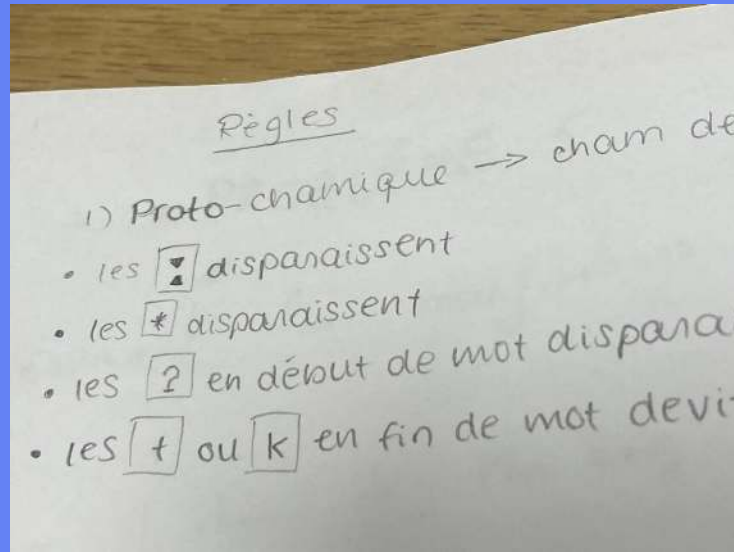 Règles
1) Proto-chamique → cham de
• les ː disparaissent
• les * disparaissent
• les ʔ en début de mot dispara
• les t ou k en fin de mot devi